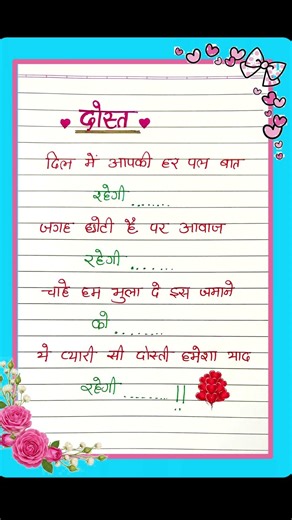 दोस्त
दिल में आपकी हर पल बात
रहेगी ........
जगह छोटी हैं पर आवाज
रहेगी ........
चाहे हम भुला दे इस जमाने
को ........
ये प्यारी सी दोस्ती हमेशा याद
रहेगी .........!!